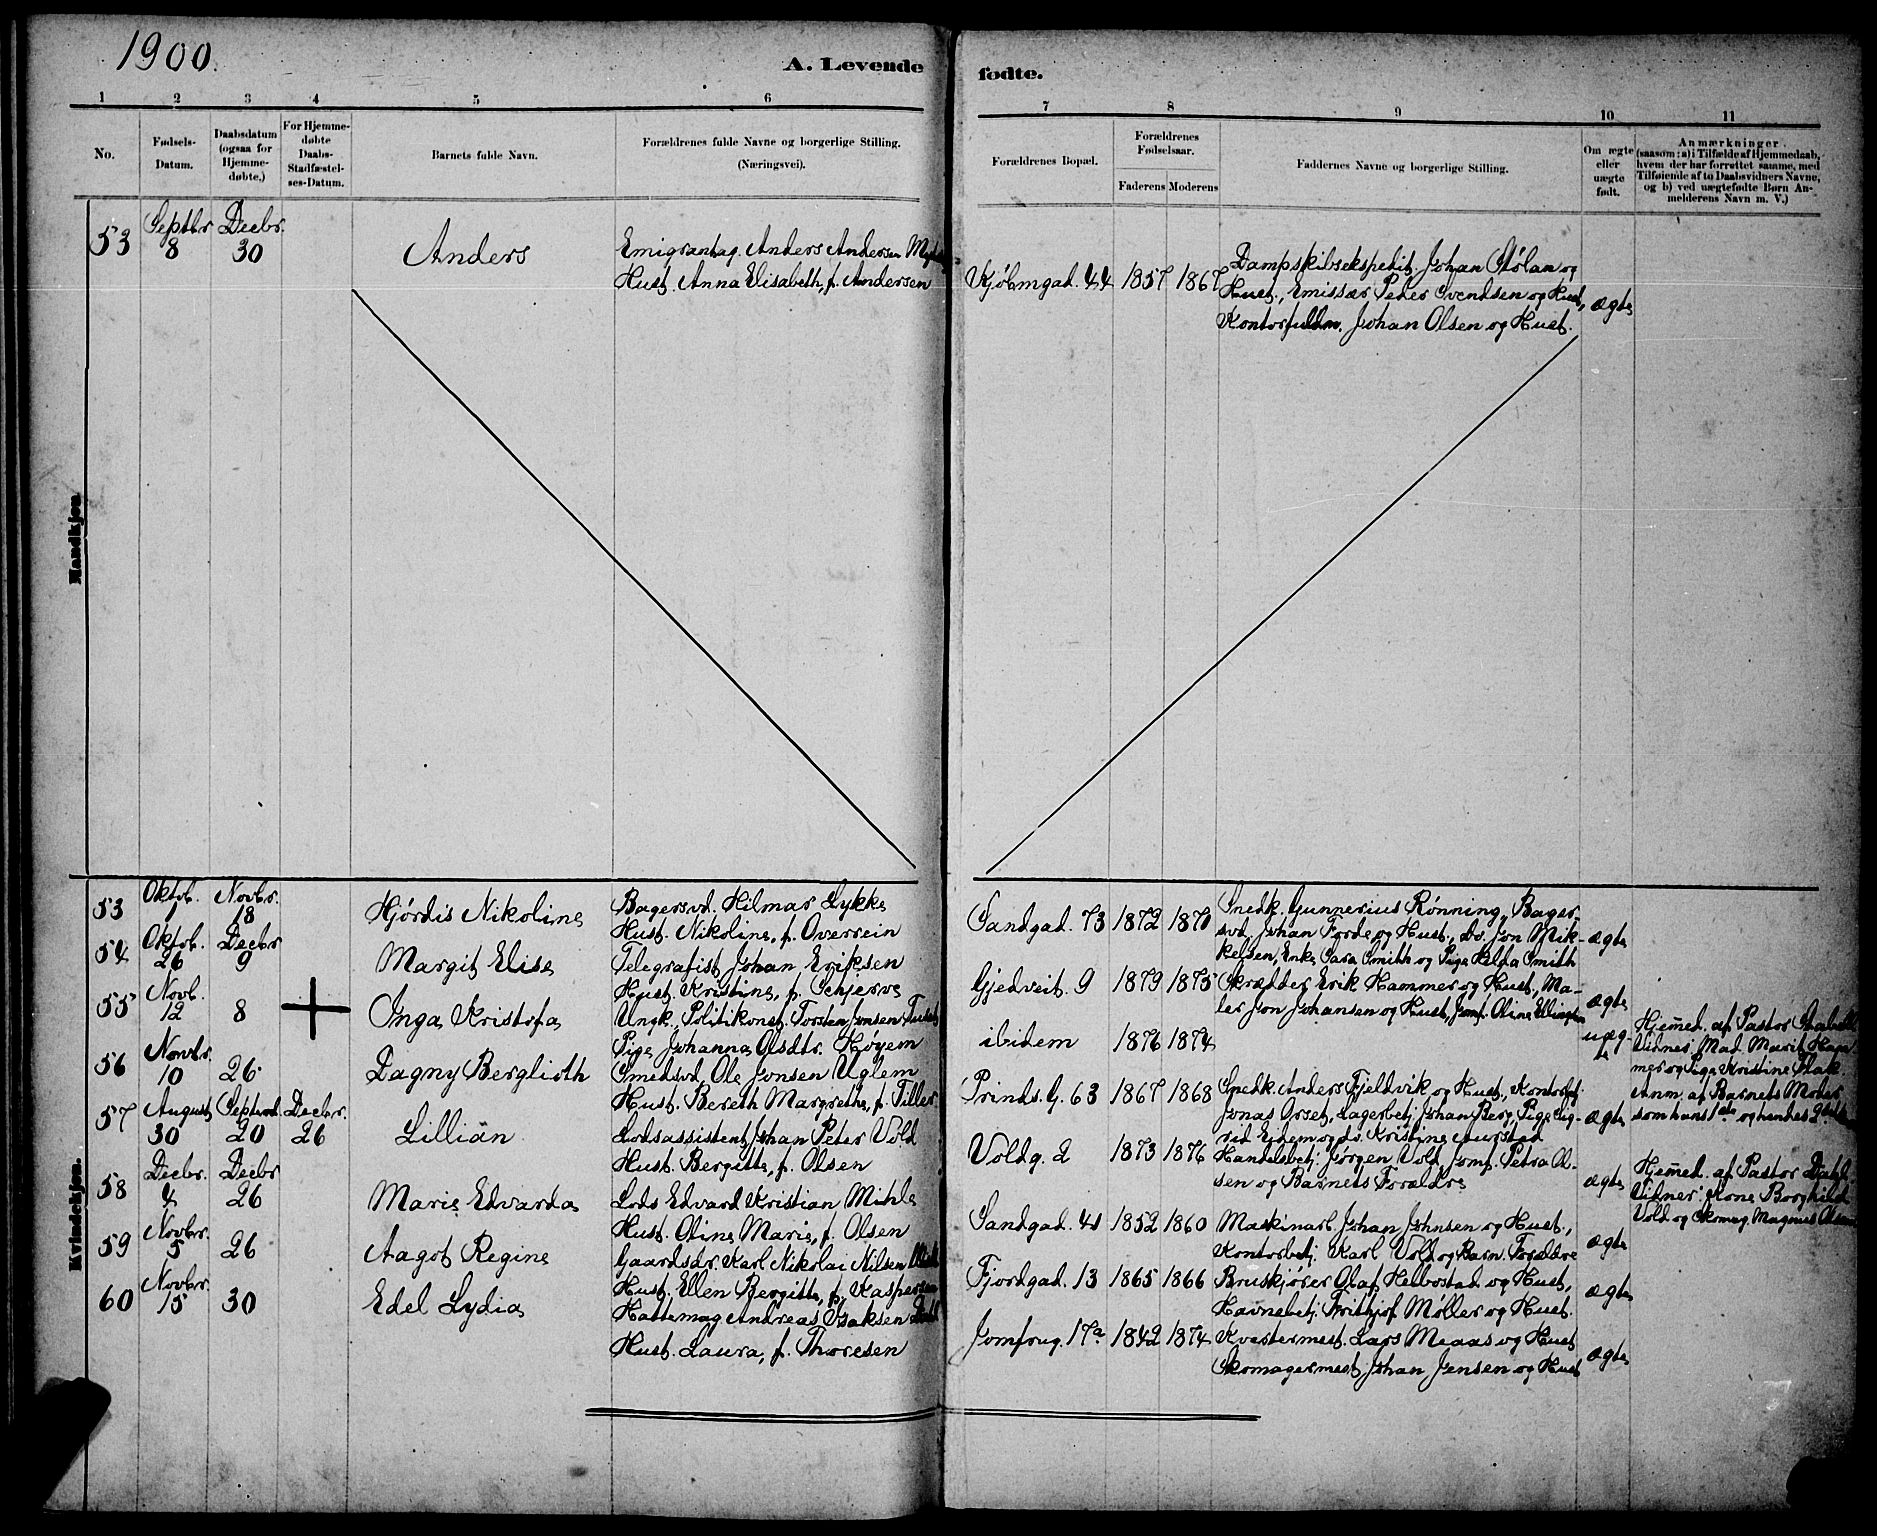 1900.
A. Levende
fødte.
1 2 3 4 5 6
7 8 9 10 11
No.
Fødsels-
Datum.
Daabsdatum
(ogsaa for
Hjemme-
døbte,)
For Hjemme-
døbte
Daabs-
Stadfæstel-
ses-Datum.
Barnets fulde Navn.
Forældrenes fulde Navne og borgerlige Stilling.
(Næringsvei).
Forældrenes Bopæl.
Forældrenes
Fødselsaar.
Faderens Moderens
Faddernes Navne og borgerlige Stilling.
Om ægte
eller
uægte
født.
Anmærkninger
(saasom: a) i Tilfælde af Hjemmedaab,
hvem der har forrettet samme, med
Tilføiende af to Daabsvidners Navne,
og b) ved uægtefødte Børn An-
melderens Navn m. V.)
Mandkjøn
53
Septbr
8
Decbr.
30
Anders
Emigrantag. Anders Andersen
Hust. Anna Elisabeth, f. Andersen
Kjøbmgad. 44 1857 1867
Dampskibsekspedit. Johan Stølan og
Hust., Emissær Peder Svendsen og Hust,
Kontorfuldm. Johan Olsen og Hust.
ægte
Kvindekjøn.
53
Oktob.
1
Novbr.
18
Hjördis Nikoline
Bagersvd. Hilmar Lykke
Hust. Nikoline, f. Overrein
Sandgad. 73 1872 1870
Snedk. Gunnerius Rønning, Bager-
svd. Johan Forde og Hust., do. Jon Mik-
kelsen, Enke Sara Smith og Pige Hilda Smith
ægte
54
Oktob.
26
Decbr
9
Margit Elise
Telegrafist Johan Eriksen
Hust. Kristine, f. Schjerve
Gjedveit. 9 1879 1875
Skrædder Erik Hammer og Hust., Ma-
ler Jon Johansen og Hust, Jomf. Oline Ellingsen
ægte
55
Novb.
12
8
Inga Kristofa
Ungk., Politikonst. Torsten Jonsen
Pige Johanna Olsdtr. Hoyem
ibidem 1876 1874
uæg-
te
Hjemmed. af Pastor
Vidner Mad. Marit
mer og Pige Kristine
Anm. af Barnets Moder
som hans 1ste og hendes 2det
56
Novbr.
10
26
Dagny Berglioth
Smedsvd. Ole Jonsen Uglem
Hust. Bereth Margrethe, f. Tiller
Prinds. G. 63 1867 1868
Snedk. Anders Fjeldvik og Hust., Kontorbtj.
Jonas Orset, Lagerbetj. Johan Berg, Pige Sig-
rid Eidem og do. Kristine
ægte
57
August
30
Septemb.
20
Decbr.
26
Lillian
Lodsassistent Johan Peter Vold
Hust. Bergitte, f. Olsen
Voldg. 2 1873 1876
Handelsbetj. Jørgen Vold, Jomf. Petra Ol-
sen og Barnets Forældre
ægte
Hjemmed. af Pastor Dahl,
Vidner: Kone Borghild
Vold og Skomag. Magnus Olsen
58
Decbr.
4
Decbr
26
Marie Edvarda
Lods Edvard Kristian Mihle
Hust. Oline Marie, f. Olsen
Sandgad. 41 1852 1860
Maskinarb. Johan Johnsen og Hust.,
Kontorbetj. Karl Vold og Barn. Forældre
ægte
59
Novbr.
5
26
Aagot Regine
Gaardsdr. Karl Nikolai Nilsen
Hust. Ellen Bergitte, f. Kaspersen
Fjordgad. 13 1865 1866
Bruskjører Olaf Helbostad og Hust,
Havnebetj. Frithjof Møller og Hust.
ægte
60
Novbr.
15
30
Edel Lydia
Hattemag Andreas Isaksen
Hust. Laura, f. Thoresen
Jomfrug. 17a 1842 1874
Kvartermest. Lars Meaas og Hust
Skomagermest. Johan Jensen og Hust
ægte